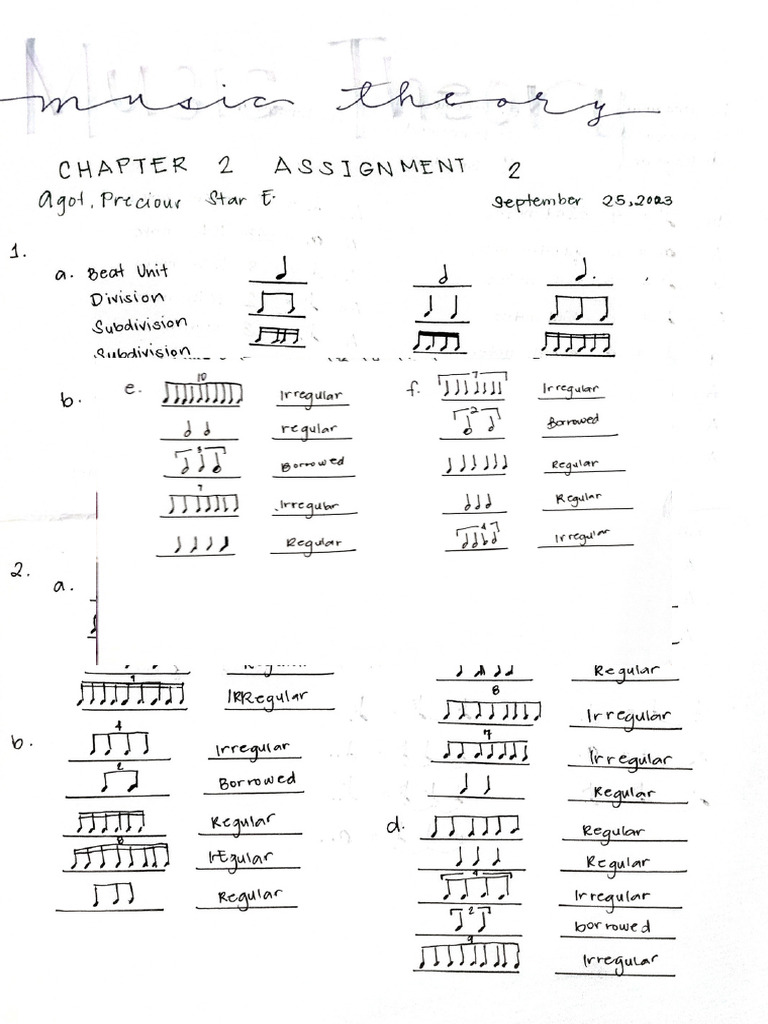 music theory
CHAPTER 2 ASSIGNMENT 2
Agot, Precious Star E.
September 25, 2023
1.
a. Beat Unit
Division
Subdivision
Subdivision
b.
e. 10 Irregular
regular
3 Borrowed
7 Irregular
Regular
f. 7 Irregular
2 Borrowed
Regular
Regular
4 Irregular
2.
a.
IRRegular
b. 4 Irregular
2 Borrowed
Regular
8 IrEgular
Regular
Regular
8 Irregular
7 Irregular
Regular
d. Regular
Regular
4 Irregular
2 borrowed
9 Irregular